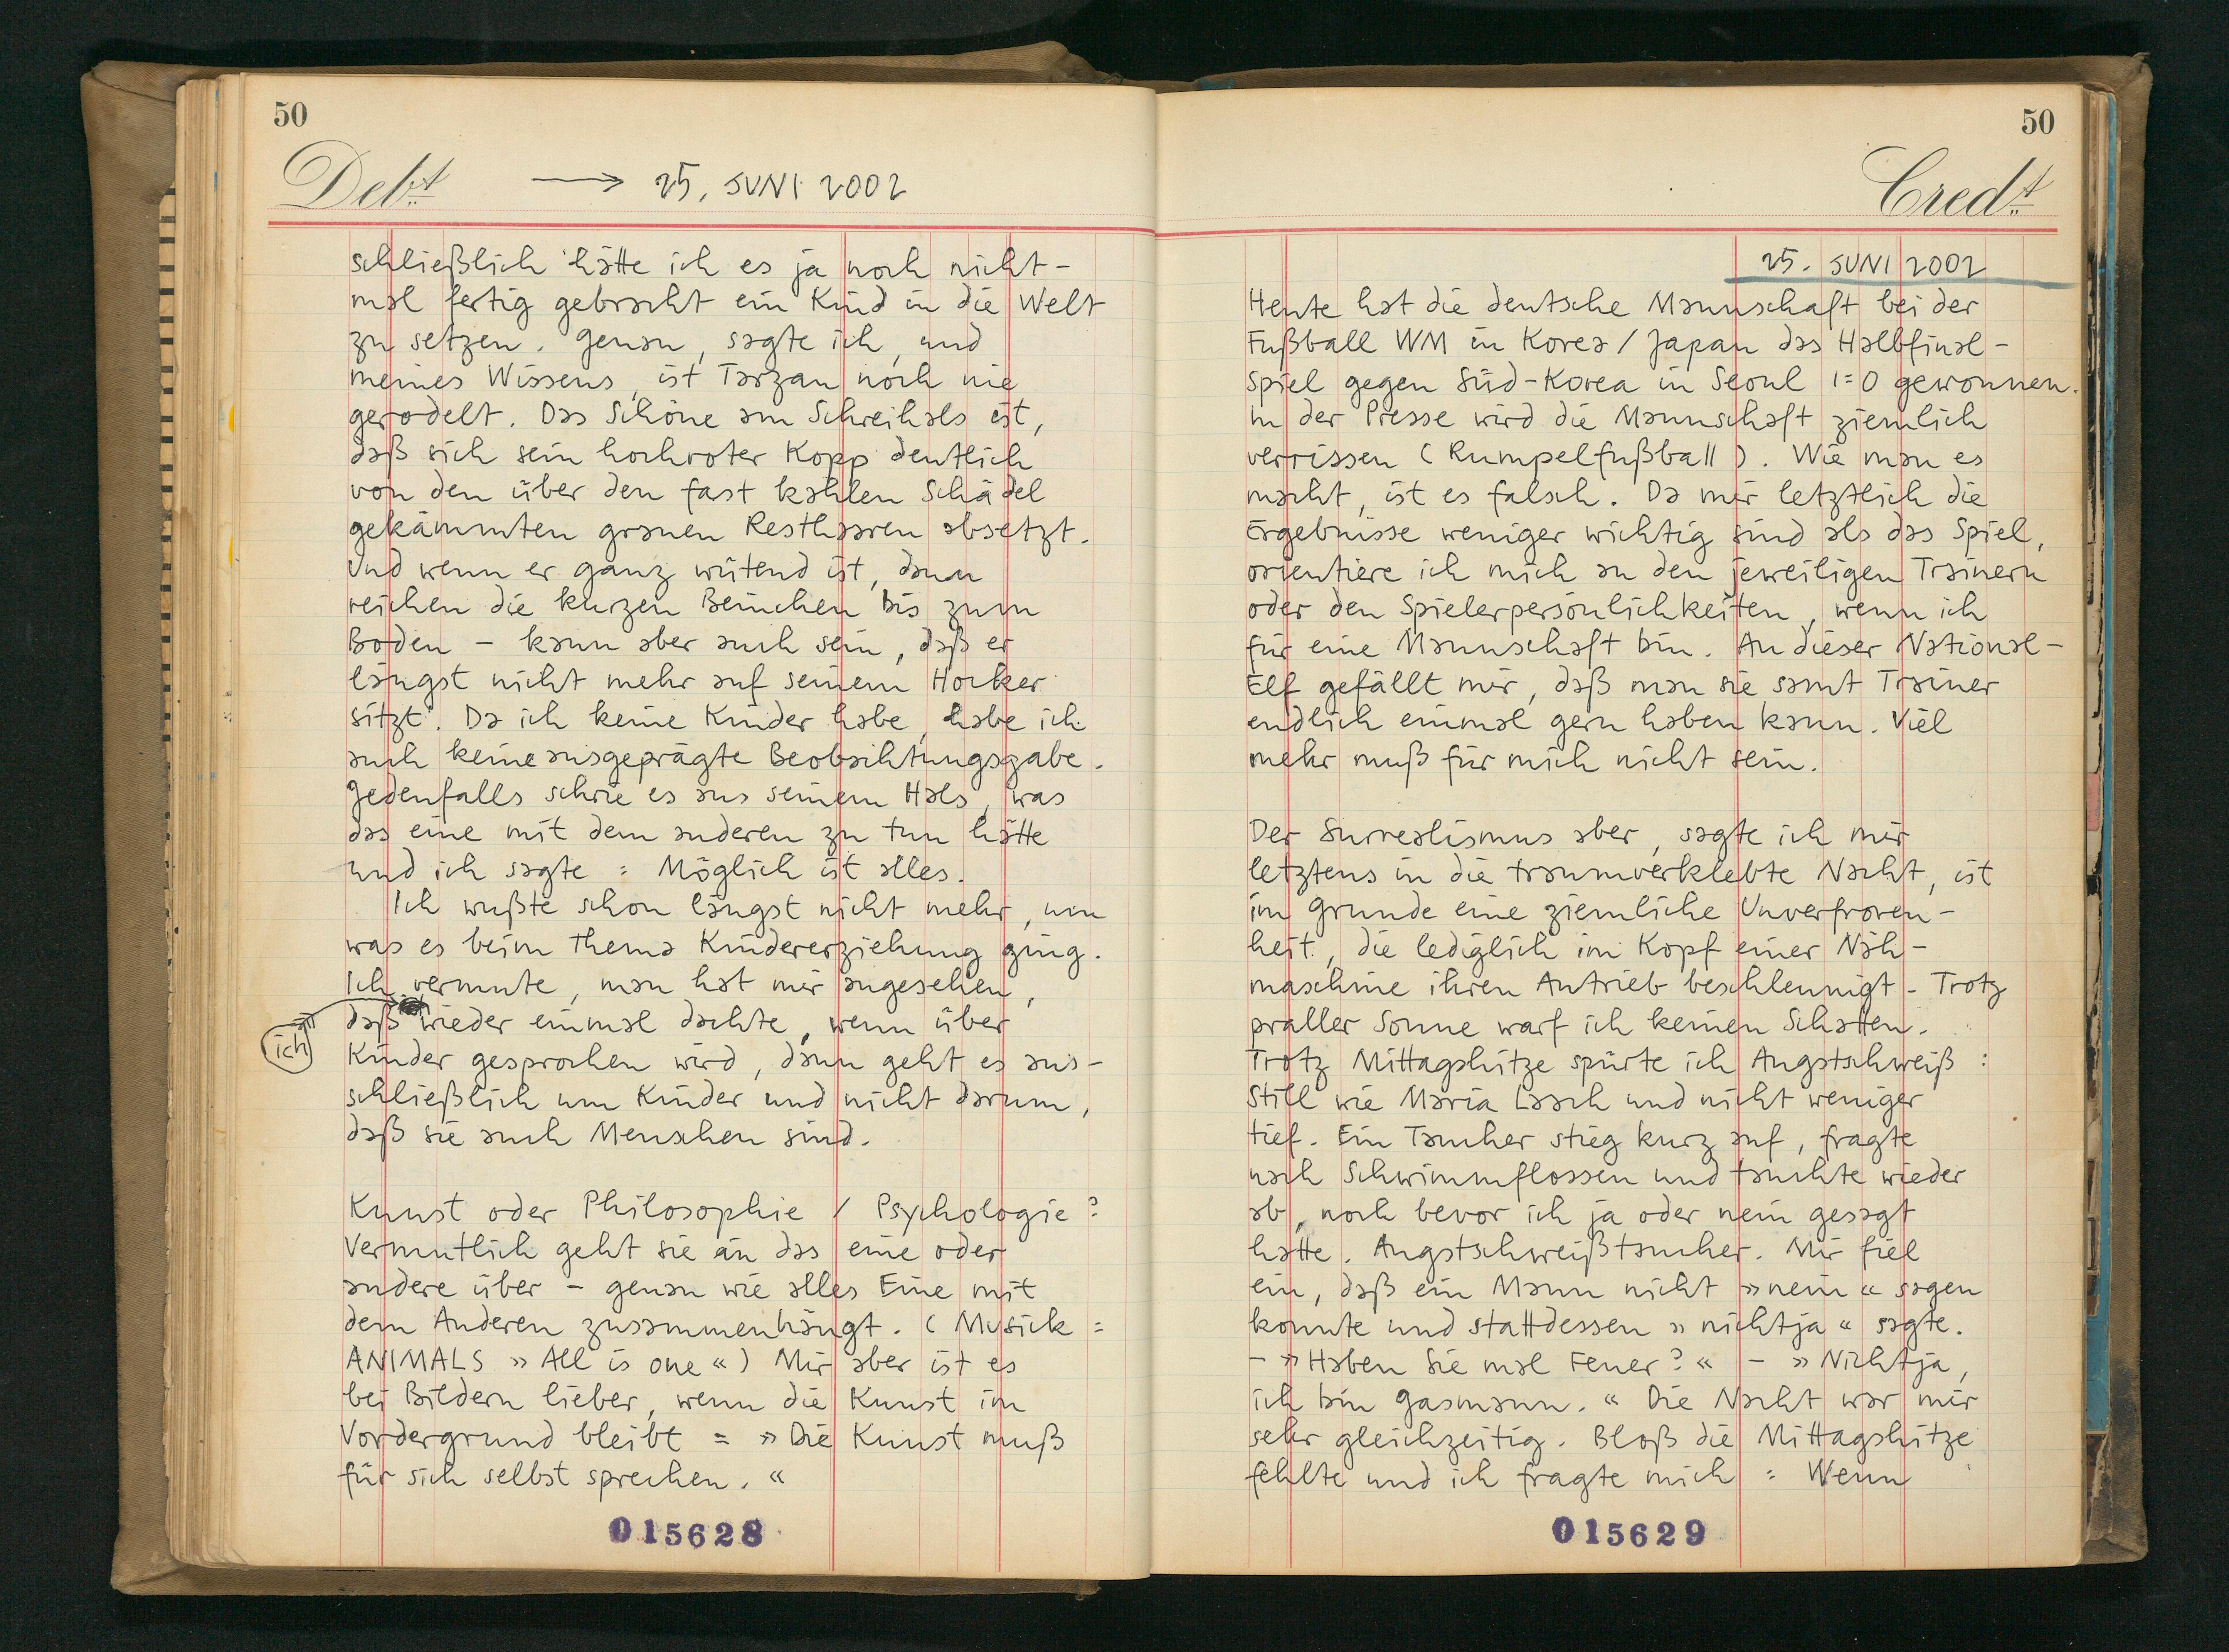 50
Debt
→ 25. JUNI 2002
schließlich hätte ich es ja noch nicht-
mal fertig gebracht ein Kind in die Welt
zu setzen. Genau, sagte ich, und
meines Wissens, ist Tarzan noch nie
gerodelt. Das Schöne am Schreihals ist,
daß sich sein hochroter Kopp deutlich
von den über den fast kahlen Schädel
gekämmten grauen Resthaaren absetzt.
Und wenn er ganz wütend ist, dann
reichen die kurzen Beinchen bis zum
Boden – kann aber auch sein, daß er
längst nicht mehr auf seinem Hocker
sitzt. Da ich keine Kinder habe, habe ich
auch keine ausgeprägte Beobachtungsgabe.
Jedenfalls schrie es aus seinem Hals, was
das eine mit dem anderen zu tun hätte
und ich sagte: Möglich ist alles.
Ich wußte schon längst nicht mehr, um
was es beim Thema Kindererziehung ging.
Ich vermute, man hat mir angesehen,
daß ich wieder einmal dachte, wenn über
Kinder gesprochen wird, dann geht es aus-
schließlich um Kinder und nicht darum,
daß sie auch Menschen sind.
Kunst oder Philosophie / Psychologie?
Vermutlich geht sie an das eine oder
andere über – genau wie alles Eine mit
dem Anderen zusammenhängt. (Musick:
ANIMALS »All is one«) Mir aber ist es
bei Bildern lieber, wenn die Kunst im
Vordergrund bleibt: »Die Kunst muß
für sich selbst sprechen.«
015628
50
Credt
25. JUNI 2002
Heute hat die deutsche Mannschaft bei der
Fußball WM in Korea/Japan das Halbfinal-
spiel gegen Süd-Korea in Seoul 1:0 gewonnen.
In der Presse wird die Mannschaft ziemlich
verrissen (Rumpelfußball). Wie man es
macht, ist es falsch. Da mir letztlich die
Ergebnisse weniger wichtig sind als das Spiel,
orientiere ich mich an den jeweiligen Trainern
oder den Spielerpersönlichkeiten, wenn ich
für eine Mannschaft bin. An dieser National-
Elf gefällt mir, daß man sie samt Trainer
endlich einmal gern haben kann. Viel
mehr muß für mich nicht sein.
Der Surrealismus aber, sagte ich mir
letztens in die traumverklebte Nacht, ist
im Grunde eine ziemliche Unverfroren-
heit, die lediglich im Kopf einer Näh-
maschine ihren Antrieb beschleunigt – Trotz
praller Sonne warf ich keinen Schatten.
Trotz Mittagshitze spürte ich Angstschweiß:
Still wie Maria Laach und nicht weniger
tief. Ein Taucher stieg kurz auf, fragte
nach Schwimmflossen und tauchte wieder
ab, noch bevor ich ja oder nein gesagt
hatte. Angstschweißtaucher. Mir fiel
ein, daß ein Mann nicht »nein« sagen
konnte und stattdessen »nichtja« sagte.
– »Haben Sie mal Feuer?« – »Nichtja,
ich bin Gasmann.« Die Nacht war mir
sehr gleichzeitig. Bloß die Mittagshitze
fehlte und ich fragte mich: Wenn
015629